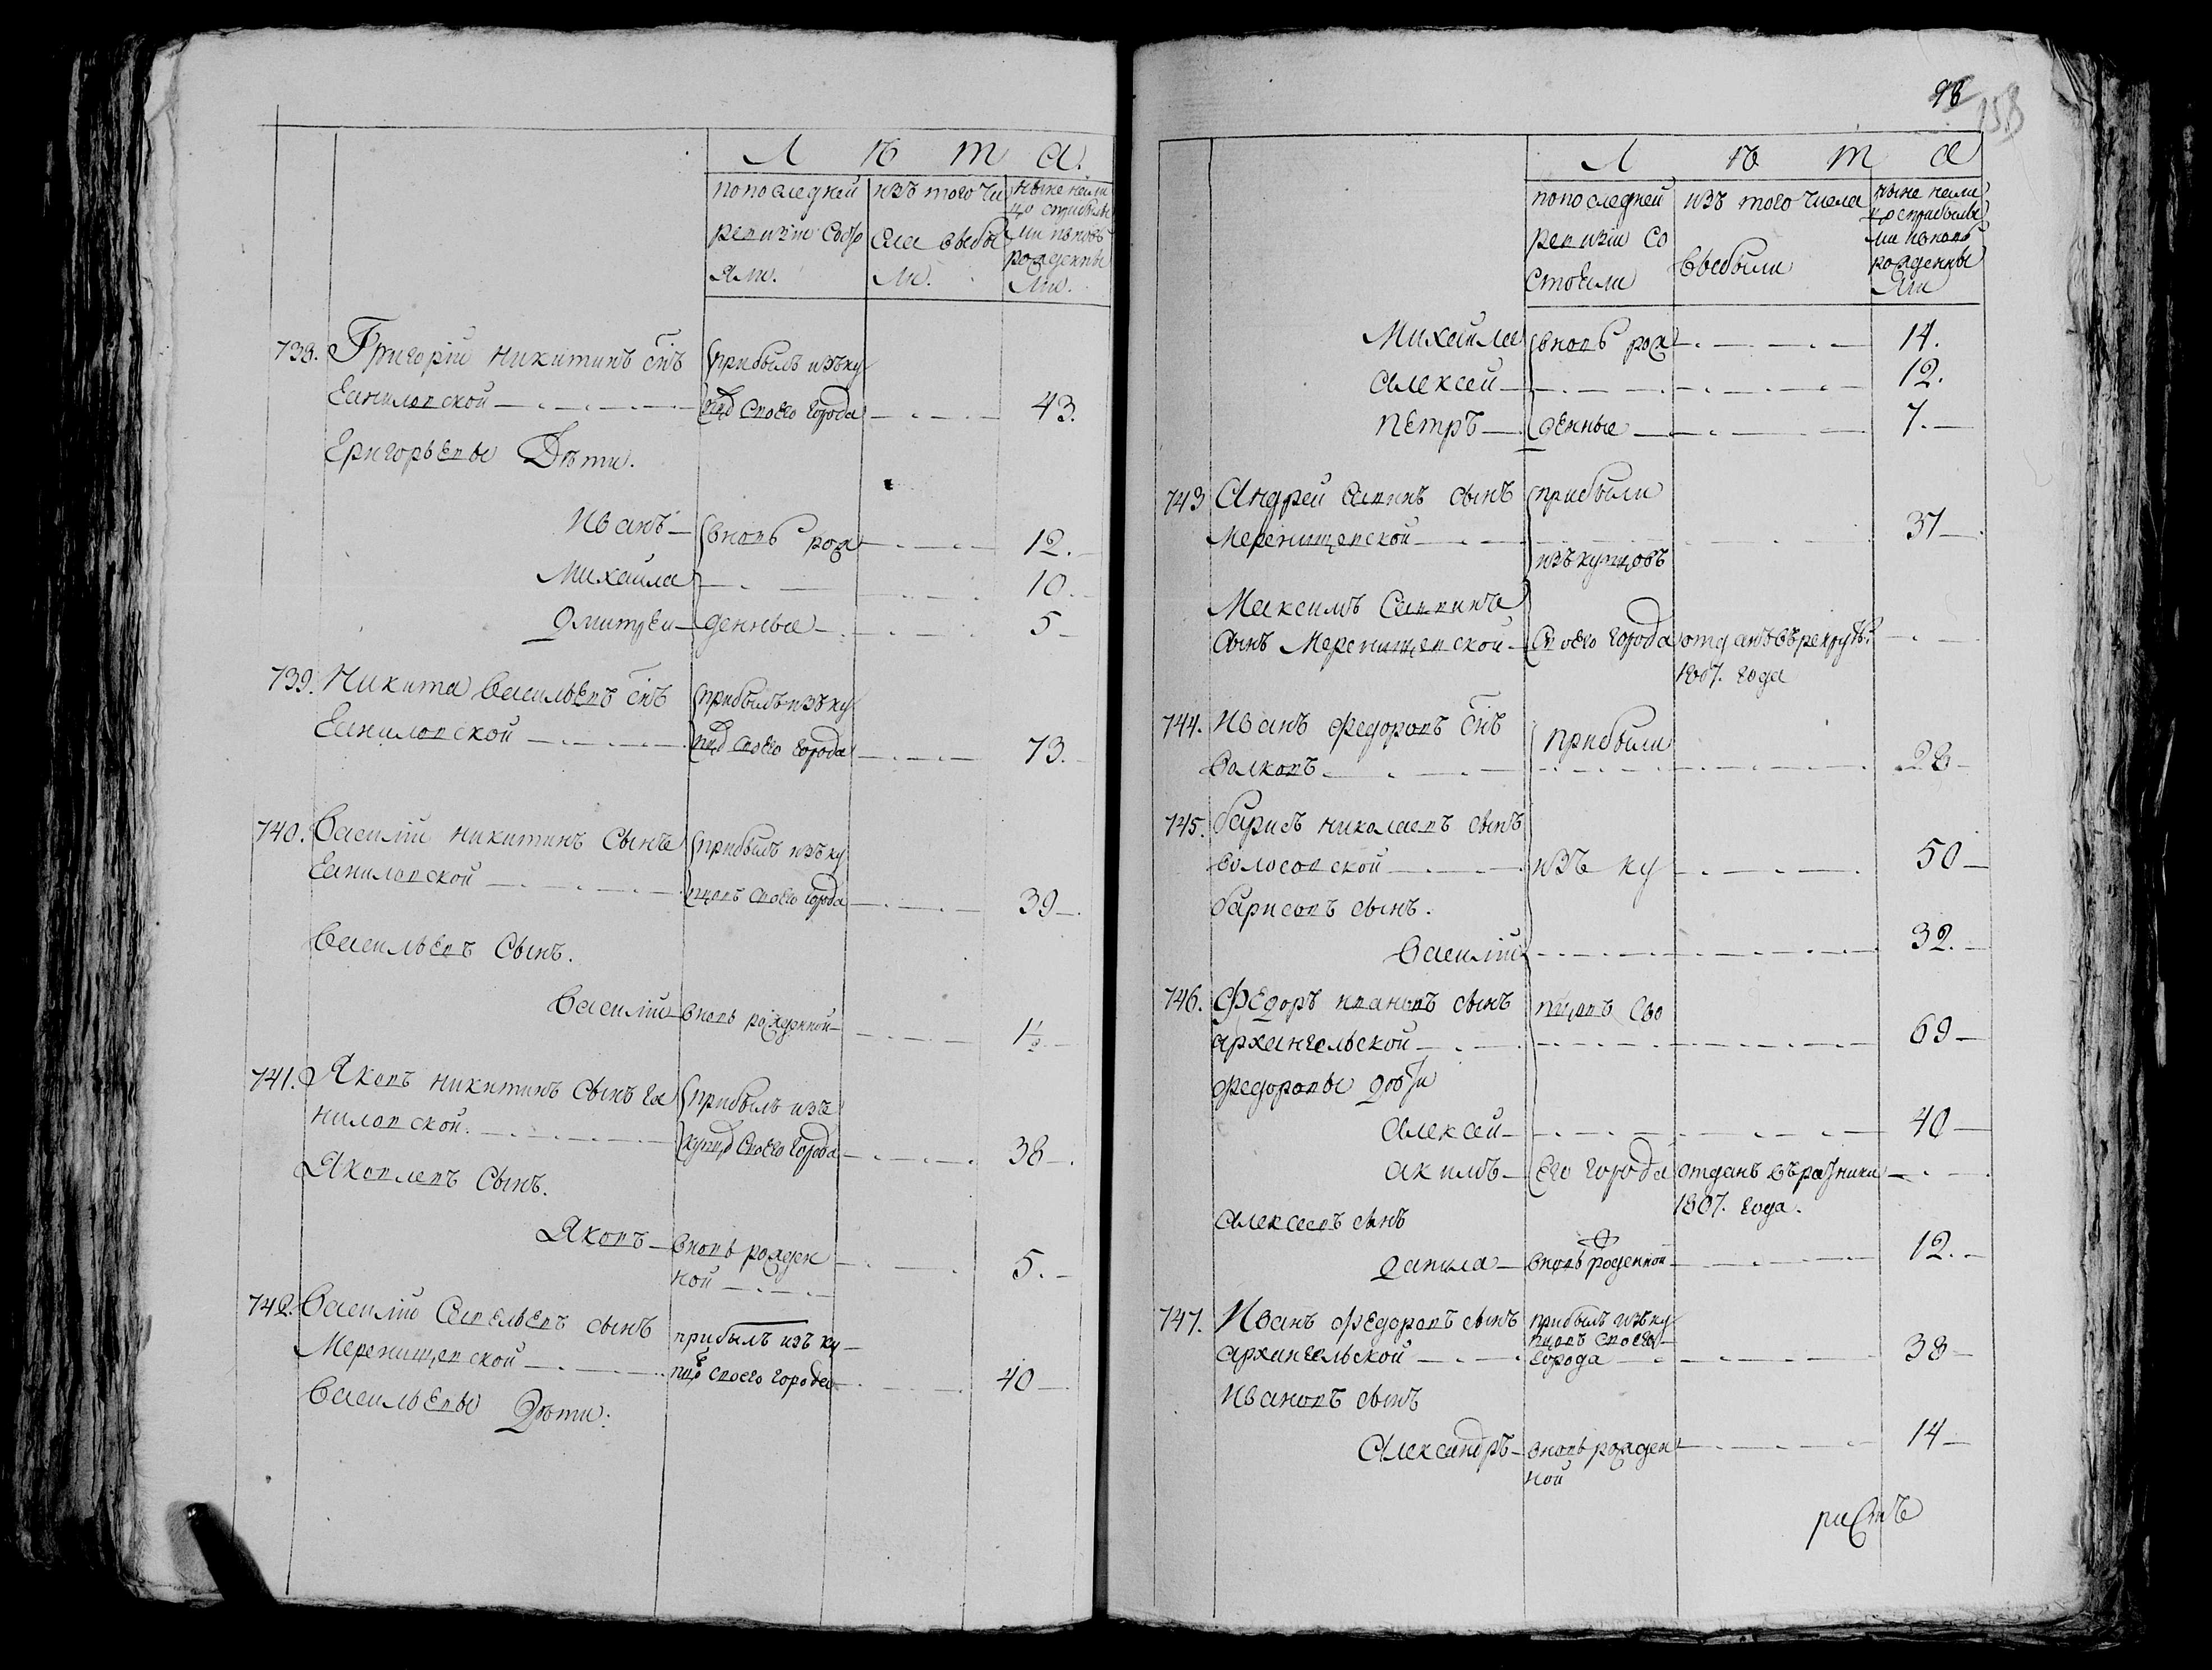 Л ѣ т а.
попоследней
ревизіи состо
яли.
изъ того чи
сла выбы
ли.
ныне нали
цо сприбылы
ми ивновь
рожденны
ми.
738. Григорій никитинъ снъ
Ганиловской
прибылъ изъку
пцов своего города
43.
Григорьевы Дѣти.
Иванъ
вновь рож
12.
Михайла
10.
Дмитрей
денные
5
739. Никита Васильевъ снъ
Ганиловской
прибылъ изъку
пцов своего города
73.
740. Василій никитинъ Сынъ
Ганиловской
прибылъ изъку
пцовъ своего города
39
Васильевъ Сынъ.
Василій
вновь рожденной
1½
741. Яковъ никитинъ Сынъ Га
ниловской.
прибылъ изъ
купцов своего города
38
Яковлевъ Сынъ.
Яковъ
вновь рожден
ной
5.
742. Василій Савельевъ сынъ
Меренищевской
прибылъ изъ ку
пцов своего города
40
Васильевы Дѣти.
98
158
Л ѣ т а
попоследней
ревизіи со
стояли
изъ того числа
выбыли
ныне нали
цо сприбылы
ми ивновь
рожденны
ми
Михайла
вновь рож
14.
Алексей
12.
Петръ
денные
7.
743 Андрей Савинъ сынъ
Меренищевской
прибыли
37
изъ купцовъ
Максимъ Саввинъ
Сынъ Меренищевской
своего города
отданъ въ рекруты
1807. года
744. Иванъ Федоровъ снъ
Волковъ
прибыли
28
745. борисъ николаевъ сынъ
волосовской
изъ ку
50
барисовъ сынъ.
Василій
32.
746. Федоръ ивановъ сынъ
архангельской
пцовъ сво
69
федоровы дѣти
Алексей
40
акимъ
его города
отданъ въ ратники
1807. года.
Алексеевъ сынъ
данила
вновь рожденной
12.
747. Иванъ Федоровъ сынъ
архангельской
прибылъ изъ ку
пцовъ своего
города
38
Ивановъ сынъ
Александръ
вновь рожден
ной
14